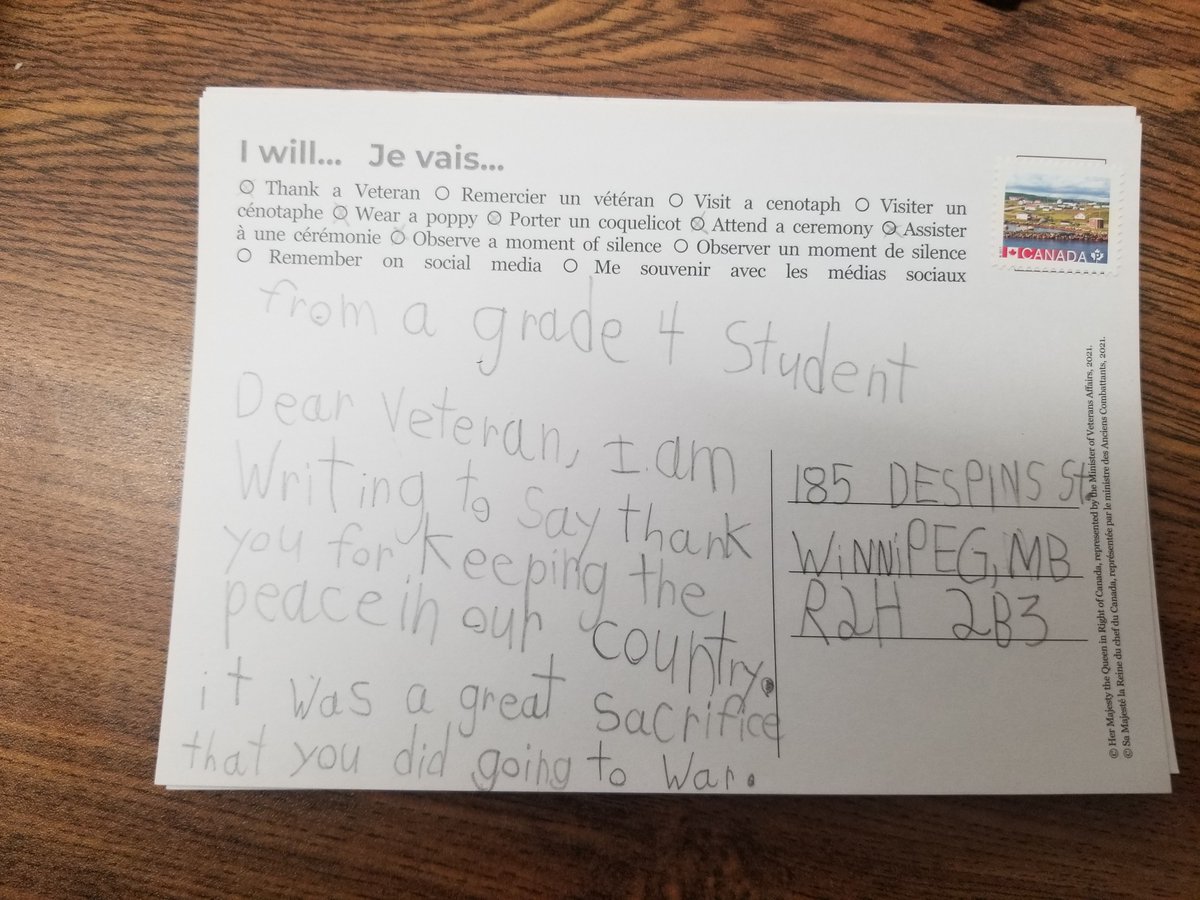 I will... Je vais...
Thank a Veteran Remercier un vétéran Visit a cenotaph Visiter un
cénotaphe Wear a poppy Porter un coquelicot Attend a ceremony Assister
à une cérémonie Observe a moment of silence Observer un moment de silence
Remember on social media Me souvenir avec les médias sociaux
CANADA P
from a grade 4 Student
Dear Veteran, I am
Writing to Say thank
you for keeping the
peace in our country.
it was a great sacrifice
that you did going to war.
185 DESPINS St.
WiNNiPEG, MB
R2H 2B3
© Her Majesty the Queen in Right of Canada, represented by the Minister of Veterans Affairs, 2021.
© Sa Majesté la Reine du chef du Canada, représentée par le ministre des Anciens Combattants, 2021.